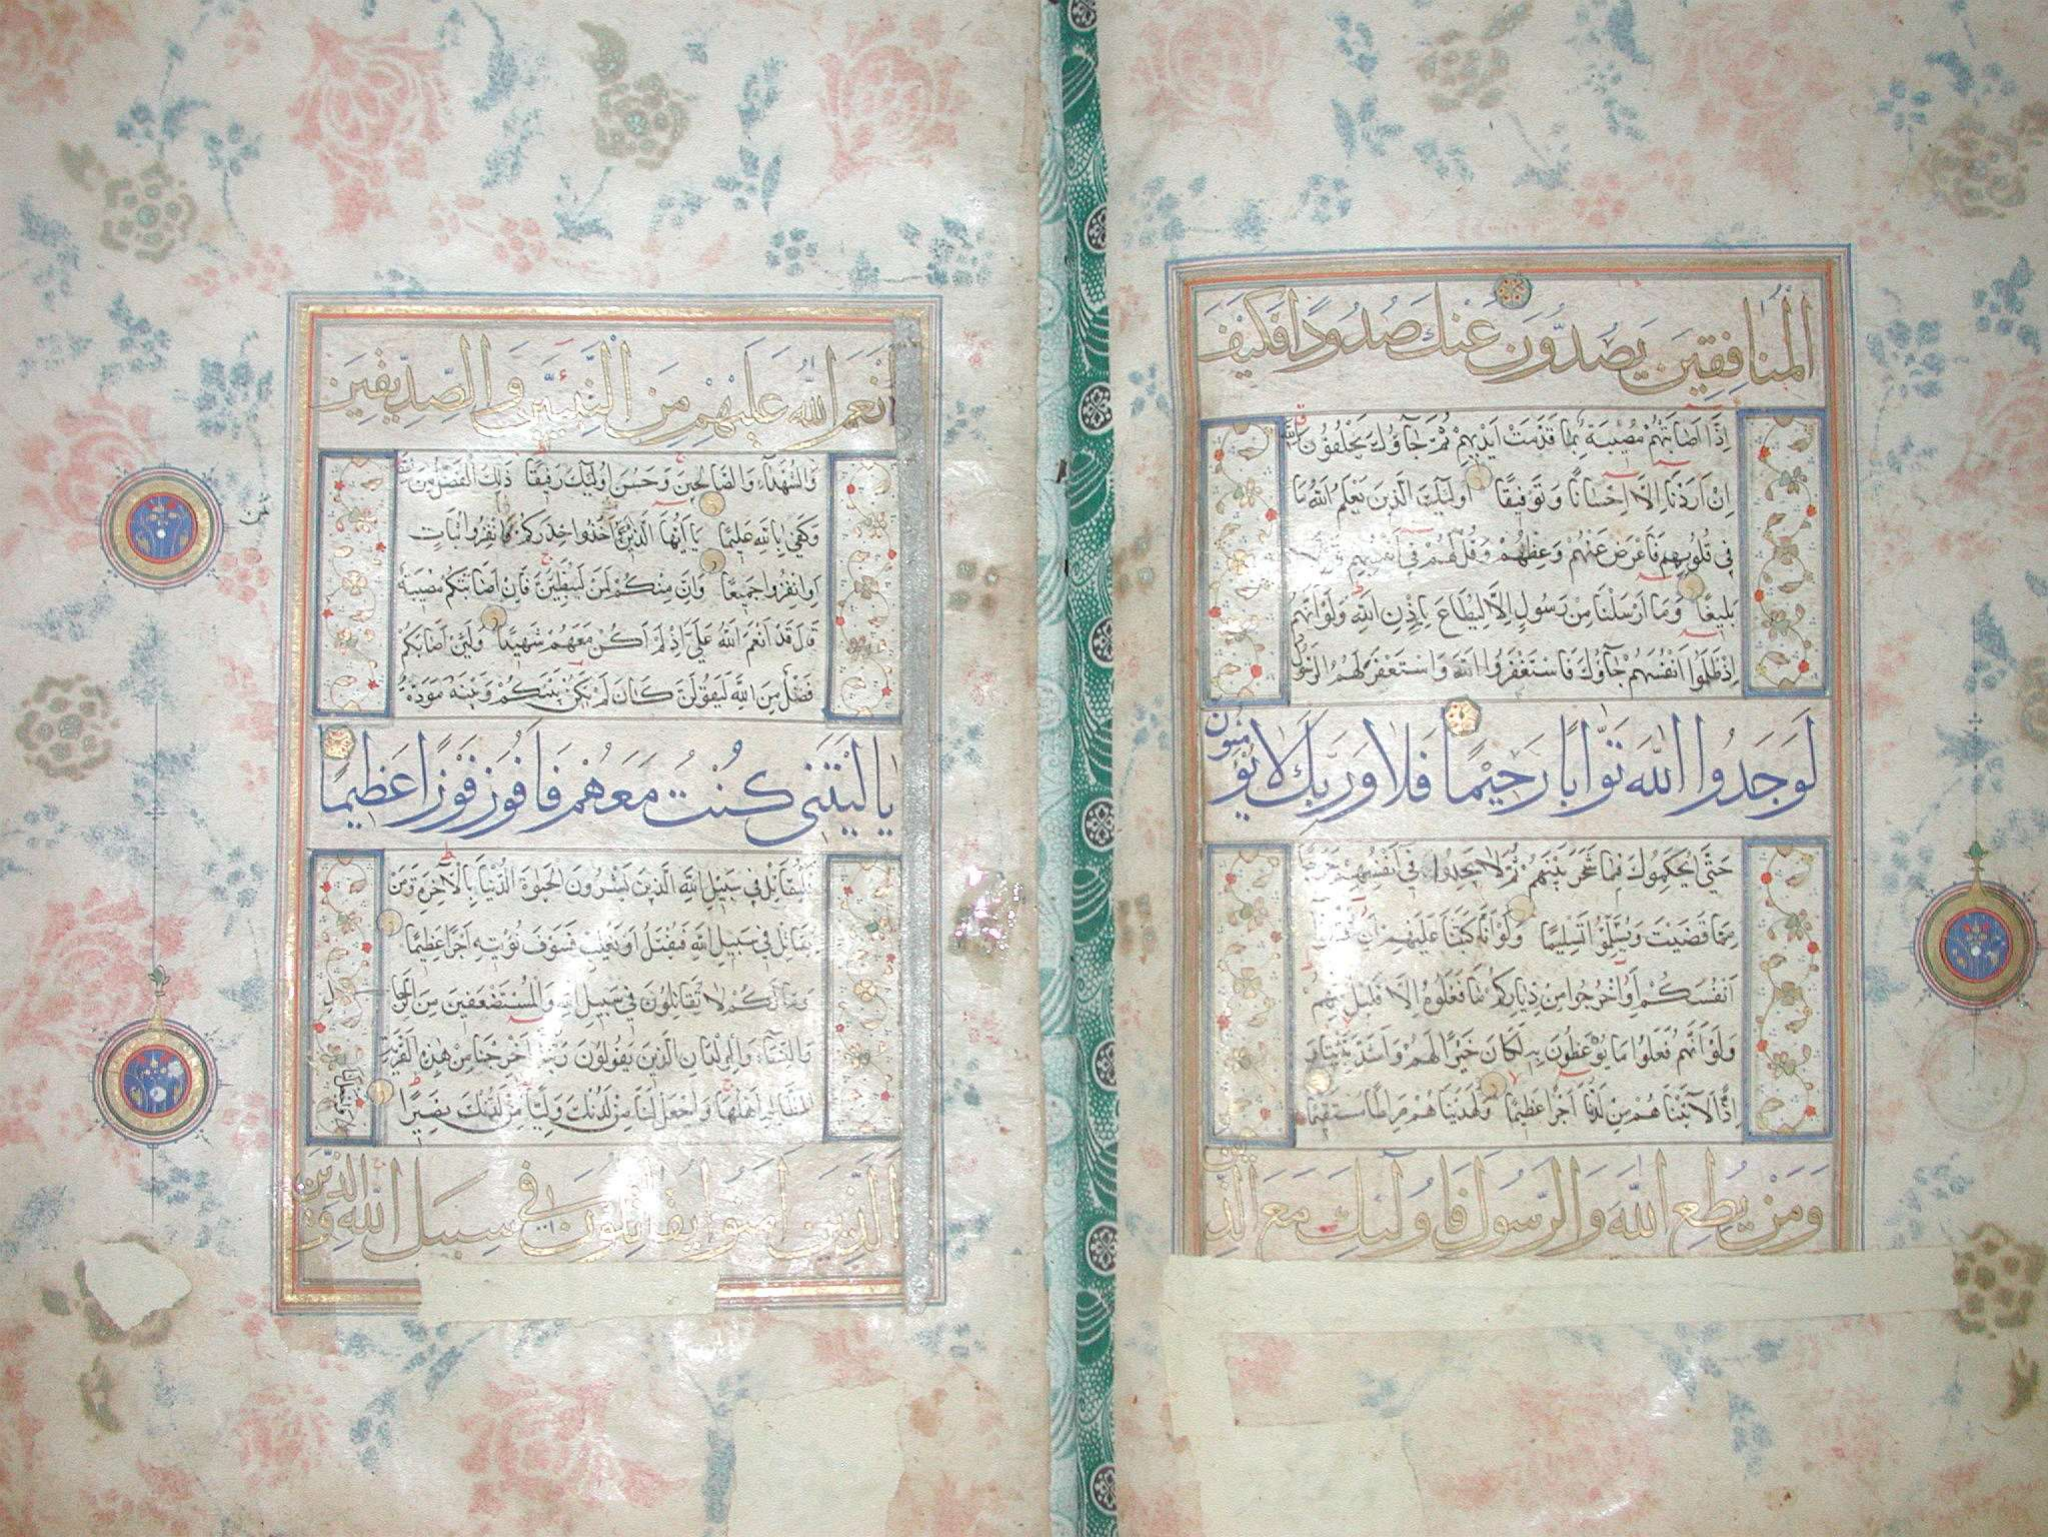 المنافقين يصدون عنك صدودا فكيف
اِذَا اَصَابَتْهُمْ مُصٖيبَةٌ بِمَا قَدَّمَتْ اَيْدٖيهِمْ ثُمَّ جَآؤُكَ يَحْلِفُونَ بِاللّٰهِ
اِنْ اَرَدْنَا اِلَّا اِحْسَانًا وَتَوْفٖيقًا اُولٰٓئِكَ الَّذٖينَ يَعْلَمُ اللّٰهُ مَا
فٖي قُلُوبِهِمْ فَاَعْرِضْ عَنْهُمْ وَعِظْهُمْ وَقُلْ لَهُمْ فٖي اَنْفُسِهِمْ قَوْلًا
بَلٖيغًا وَمَا اَرْسَلْنَا مِنْ رَسُولٍ اِلَّا لِيُطَاعَ بِاِذْنِ اللّٰهِ وَلَوْ اَنَّهُمْ
اِذْ ظَلَمُوا اَنْفُسَهُمْ جَآؤُكَ فَاسْتَغْفَرُوا اللّٰهَ وَاسْتَغْفَرَ لَهُمُ الرَّسُولُ
لَوَجَدُوا اللّٰهَ تَوَّابًا رَحٖيمًا فَلَا وَرَبِّكَ لَا يُؤْمِنُونَ
حَتّٰى يُحَكِّمُوكَ فٖيمَا شَجَرَ بَيْنَهُمْ ثُمَّ لَا يَجِدُوا فٖي اَنْفُسِهِمْ حَرَجًا
مِمَّا قَضَيْتَ وَيُسَلِّمُوا تَسْلٖيمًا وَلَوْ اَنَّا كَتَبْنَا عَلَيْهِمْ اَنِ اقْتُلُوا
اَنْفُسَكُمْ اَوِ اخْرُجُوا مِنْ دِيَارِكُمْ مَا فَعَلُوهُ اِلَّا قَلٖيلٌ مِنْهُمْ
وَلَوْ اَنَّهُمْ فَعَلُوا مَا يُوعَظُونَ بِهٖ لَكَانَ خَيْرًا لَهُمْ وَاَشَدَّ تَثْبٖيتًا وَ
اِذًا لَاٰتَيْنَاهُمْ مِنْ لَدُنَّا اَجْرًا عَظٖيمًا وَلَهَدَيْنَاهُمْ صِرَاطًا مُسْتَقٖيمًا
وَمَنْ يُطِعِ اللّٰهَ وَالرَّسُولَ فَاُولٰٓئِكَ مَعَ الَّذٖينَ
اَنْعَمَ اللّٰهُ عَلَيْهِمْ مِنَ النَّبِيّٖينَ وَالصِّدّٖيقٖينَ
وَالشُّهَدَآءِ وَالصَّالِحٖينَ وَحَسُنَ اُولٰٓئِكَ رَفٖيقًا ذٰلِكَ الْفَضْلُ مِنَ اللّٰهِ
وَكَفٰى بِاللّٰهِ عَلٖيمًا يَا اَيُّهَا الَّذٖينَ اٰمَنُوا خُذُوا حِذْرَكُمْ فَانْفِرُوا ثُبَاتٍ
اَوِ انْفِرُوا جَمٖيعًا وَاِنَّ مِنْكُمْ لَمَنْ لَيُبَطِّئَنَّ فَاِنْ اَصَابَتْكُمْ مُصٖيبَةٌ
قَالَ قَدْ اَنْعَمَ اللّٰهُ عَلَيَّ اِذْ لَمْ اَكُنْ مَعَهُمْ شَهٖيدًا وَلَئِنْ اَصَابَكُمْ
فَضْلٌ مِنَ اللّٰهِ لَيَقُولَنَّ كَاَنْ لَمْ يَكُنْ بَيْنَكُمْ وَبَيْنَهُ مَوَدَّةٌ
يَا لَيْتَنٖي كُنْتُ مَعَهُمْ فَاَفُوزَ فَوْزًا عَظٖيمًا
فَلْيُقَاتِلْ فٖي سَبٖيلِ اللّٰهِ الَّذٖينَ يَشْرُونَ الْحَيٰوةَ الدُّنْيَا بِالْاٰخِرَةِ وَمَنْ
يُقَاتِلْ فٖي سَبٖيلِ اللّٰهِ فَيُقْتَلْ اَوْ يَغْلِبْ فَسَوْفَ نُؤْتٖيهِ اَجْرًا عَظٖيمًا
وَمَا لَكُمْ لَا تُقَاتِلُونَ فٖي سَبٖيلِ اللّٰهِ وَالْمُسْتَضْعَفٖينَ مِنَ الرِّجَالِ
وَالنِّسَآءِ وَالْوِلْدَانِ الَّذٖينَ يَقُولُونَ رَبَّنَا اَخْرِجْنَا مِنْ هٰذِهِ الْقَرْيَةِ
الظَّالِمِ اَهْلُهَا وَاجْعَلْ لَنَا مِنْ لَدُنْكَ وَلِيًّا مِنْ لَدُنْكَ نَصٖيرًا
الَّذٖينَ اٰمَنُوا يُقَاتِلُونَ فٖي سَبٖيلِ اللّٰهِ وَالَّذٖينَ